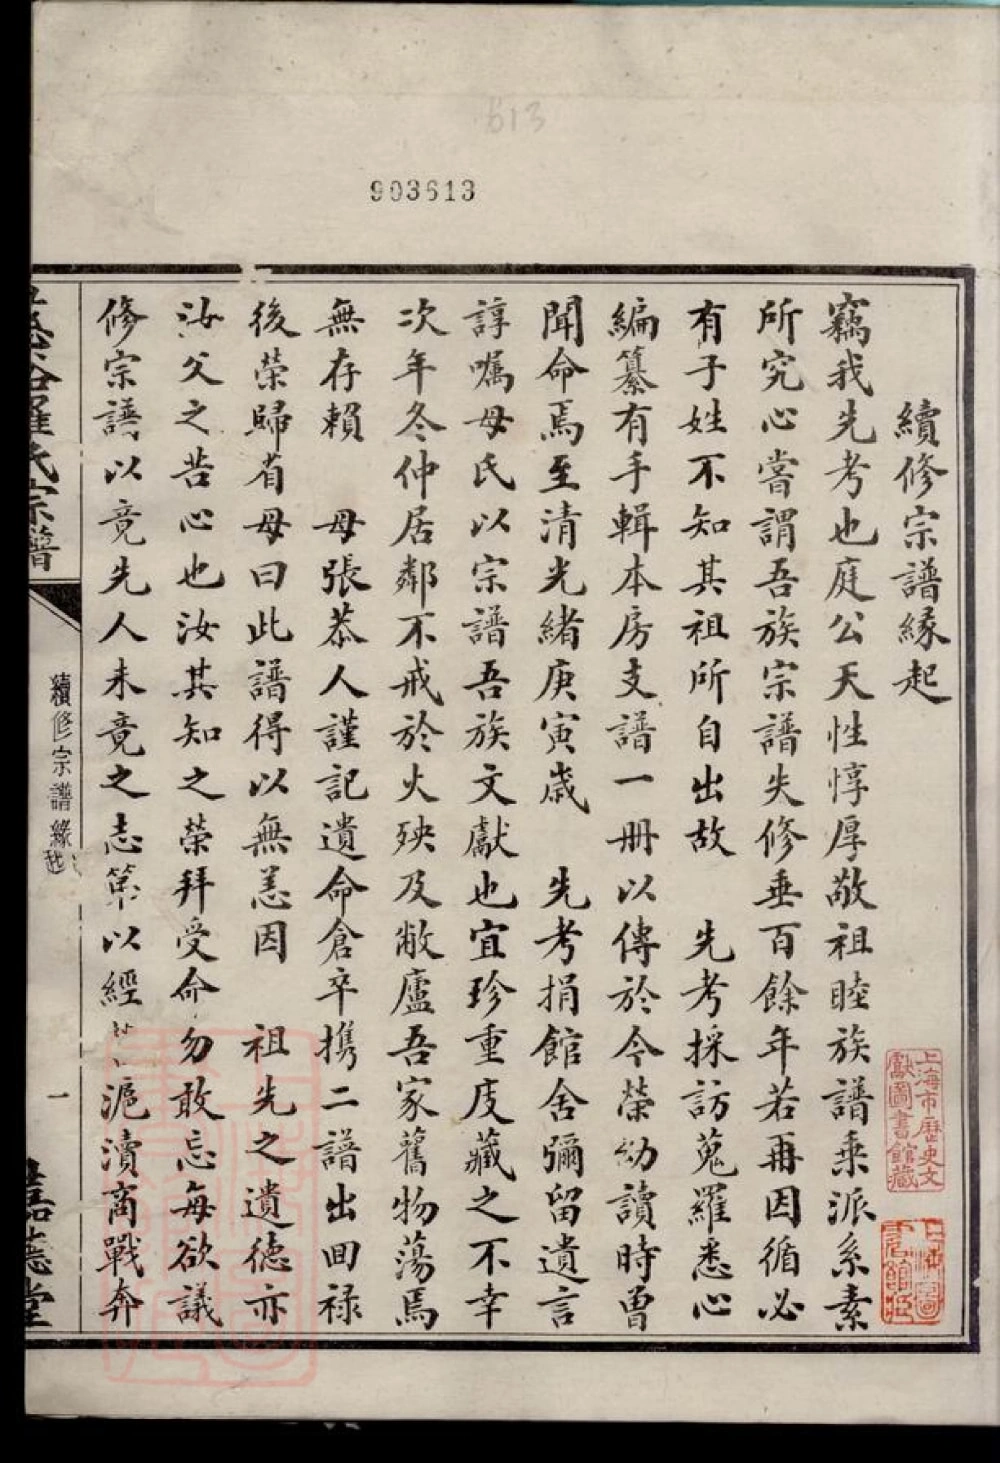 613
903613
續修宗譜緣起
竊我先考也庭公天性惇厚敬祖睦族譜乘派系素
所究心嘗謂吾族宗譜失修垂百餘年若再因循必
有子姓不知其祖所自出故 先考採訪蒐羅悉心
編纂有手輯本房支譜一册以傳於今榮幼讀時曾
聞命焉至清光緒庚寅歲 先考捐館舍彌留遺言
諄囑母氏以宗譜吾族文獻也宜珍重庋藏之不幸
次年冬仲居鄰不戒於火殃及敝廬吾家舊物蕩焉
無存賴 母張恭人謹記遺命倉卒携二譜出回祿
後榮歸省母曰此譜得以無恙因 祖先之遺德亦
汝父之苦心也汝其知之榮拜受命勿敢忘每欲議
修宗譜以竟先人未竟之志第以經 滬瀆商戰奔
羅氏宗譜
續修宗譜緣起
一
德堂
上海市歷史文
獻圖書館藏
上海圖
書館藏